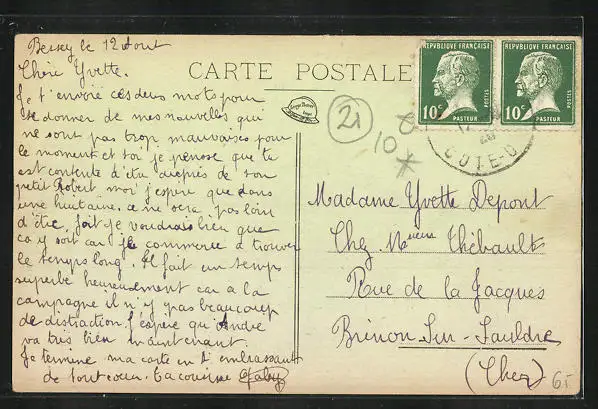 Bessey le 12 Aout
Chère Yvette.
Je t'envoie ces deux mots pour
te donner de mes nouvelles qui
ne sont pas trop mauvaises pour
le moment et toi je pense que tu
est contente d'etre auprès de ton
petit Robert. moi j'espère que dans
une huitaine ce ne sera pas loin
d'être fait je voudrais bien que
ca y soit car je commence a trouver
le temps long. Il fait un temps
superbe heureusement car a la
campagne il n'y a pas beaucoup
de distraction. J'espère qu'André
va très bien maintenant.
Je termine ma carte en t'embrassant
de tout cœur. Ta cousine Gaby
CARTE POSTALE
21
10
REPVBLIQVE FRANÇAISE
10c
POSTES
PASTEUR
REPVBLIQVE FRANÇAISE
10c
POSTES
PASTEUR
COTE-D
Madame Yvette Depont
Chez Mme Thébault
Rue de la Jacques
Brinon Sur Sauldre
(Cher)